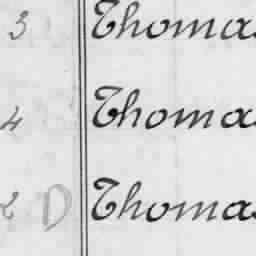 3 Thomas
4 Thomas
2 D Thomas